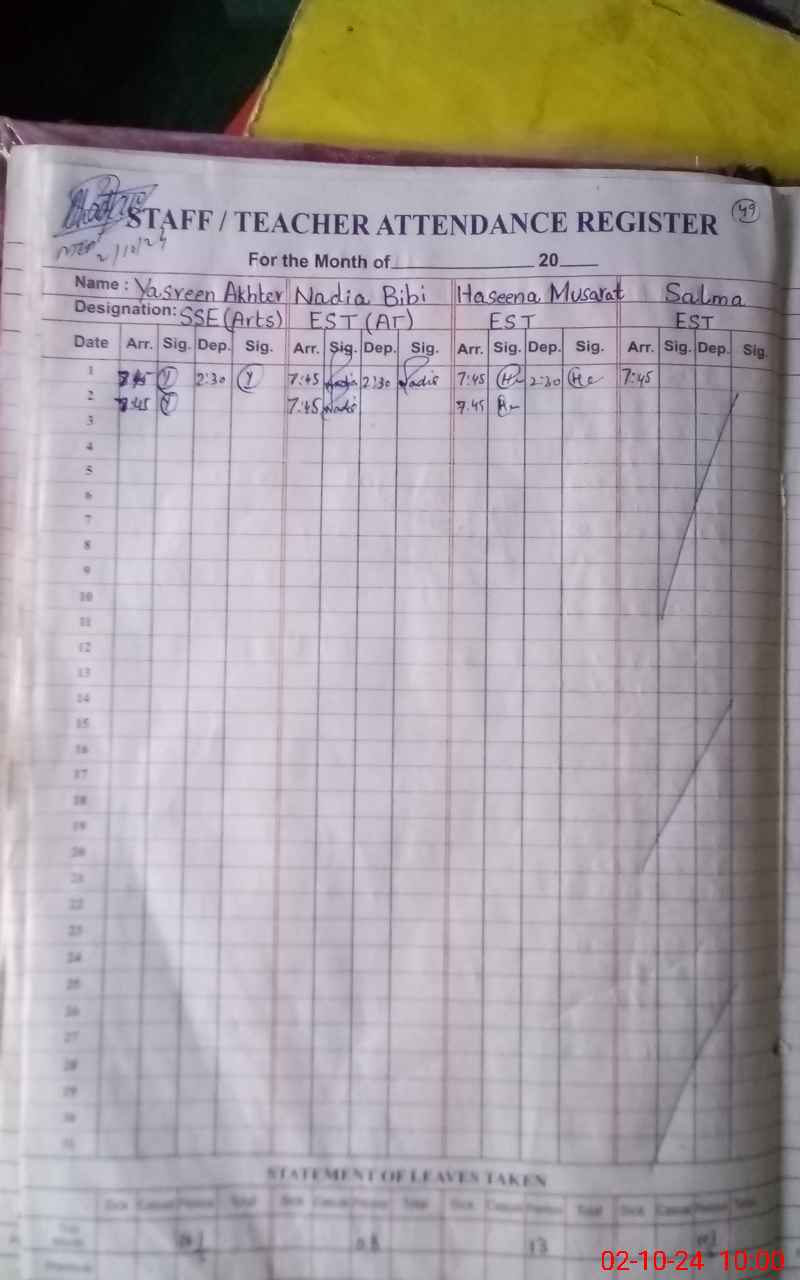 49
STAFF / TEACHER ATTENDANCE REGISTER
2/10/24
For the Month of 20
Name : Yasreen Akhter Nadia Bibi Haseena Musarat Salma
Designation: SSE (Arts) EST (AT) EST EST
Date Arr. Sig. Dep. Sig. Arr. Sig. Dep. Sig. Arr. Sig. Dep. Sig. Arr. Sig. Dep. Sig.
1 7:45 Y 2:30 Y 7:45 Nadia 2:30 Nadia 7:45 2:30 7:45
2 7:45 Y 7:45 Nadia 7:45
3
4
5
6
7
8
9
10
11
12
13
14
15
16
17
18
19
20
21
22
23
24
25
26
27
28
29
30
31
STATEMENT OF LEAVES TAKEN
Sick Casual Total Sick Casual Total Sick Casual Total Sick Casual
13
02-10-24 10:00